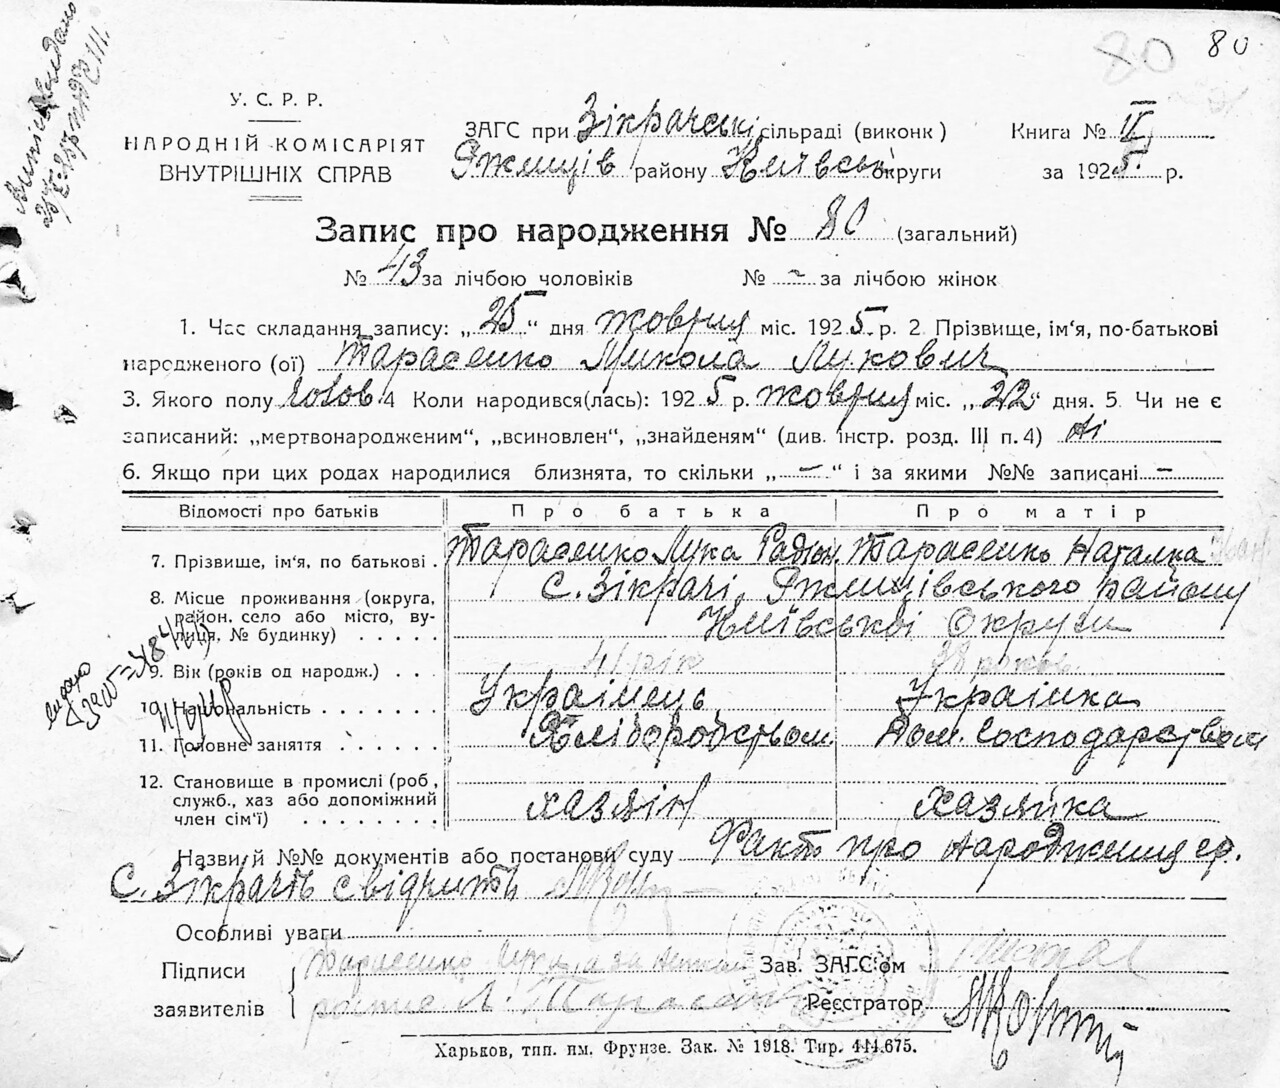 80 80
У. С. Р. Р.
НАРОДНІЙ КОМІСАРІЯТ
ВНУТРІШНІХ СПРАВ
ЗАГС при Зікрачські сільраді (виконк)
Ржищів району Київські округи
Книга № II
за 1925 р.
Запис про народження № 80 (загальний)
№ 43 за лічбою чоловіків № – за лічбою жінок
1. Час складання запису: „25“ дня жовтня міс. 1925 р. 2 Прізвище, ім'я, по-батькові
народженого (ої) Тарасенко Микола Лукович
3. Якого полу чолов 4 Коли народився(лась): 1925 р. жовтня міс. „22“ дня. 5. Чи не є
записаний: „мертвонародженим“, „всиновлен“, „знайденям“ (див. інстр. розд. III п. 4) Ні
6. Якщо при цих родах народилися близнята, то скільки „–“ і за якими №№ записані –
Відомості про батьків Про батька Про матір
7. Прізвище, ім'я, по батькові . Тарасенко Лука Радіон. Тарасенко Наталка
8. Місце проживання (округа, район, село або місто, вулиця, № будинку) . . . . . с. Зікрачі, Ржищівського району
Київської Округи
9. Вік (років од народж.) . . . 41 рік 38 років
10. Національність . . . . . . . Українець Українка
11. Головне заняття . . . . . . Хліборобством Дом. Господарством
12. Становище в промислі (роб, служб., хаз або допоміжний член сім'ї) . . . . . . . . хазяїн хазяйка
Назви й №№ документів або постанови суду Факт про народження гр.
с. Зікрачів свідчить
Особливі уваги
Підписи
заявителів
Тарасенко Лука а за неписьм
роспис Л. Тарасенко
Зав. ЗАГС'ом
Реєстратор
Харьков, тип. им. Фрунзе. Зак. № 1918. Тир. 444.675.